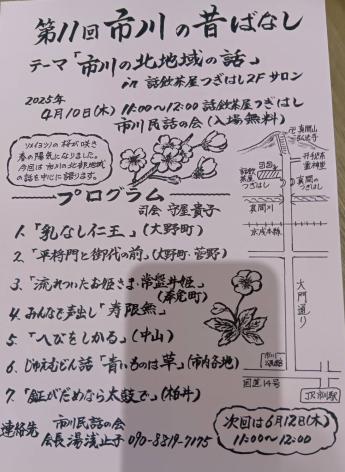 第11回 市川の昔ばなし
テーマ「市川の北地域の話」
in 話飲茶屋つぎはし2F サロン
2025年
4月10日(木) 11:00〜12:00 話飲茶屋つぎはし
市川民話の会 (入場無料)
ソメイヨシノの桜が咲き
春の陽気になりました。
今回は市川の北部地域
の話を中心に語ります。
プログラム
司会 守屋貴子
1. 「乳なし仁王」(大野町)
2. 「平将門と御代の前」(大野町・菅野)
3. 「流れついたお姫さま・常盤井姫」
4. みんなで声出し「寿限無」
5. 「へびをしかる」(中山)
6. じゅえむどん話「青いものは草」(市内各地)
7. 「鉦がだめなら太鼓で」(柏井)
連絡先 市川民話の会
会長 湯浅止子 090-8819-7175
真間山
弘法寺
手児奈
霊神堂
話飲茶屋
つぎはし
真間の
つぎはし
真間川
京成本線
大門通り
市川
国道14号
JR市川駅
次回は6月12日(木)
11:00〜12:00